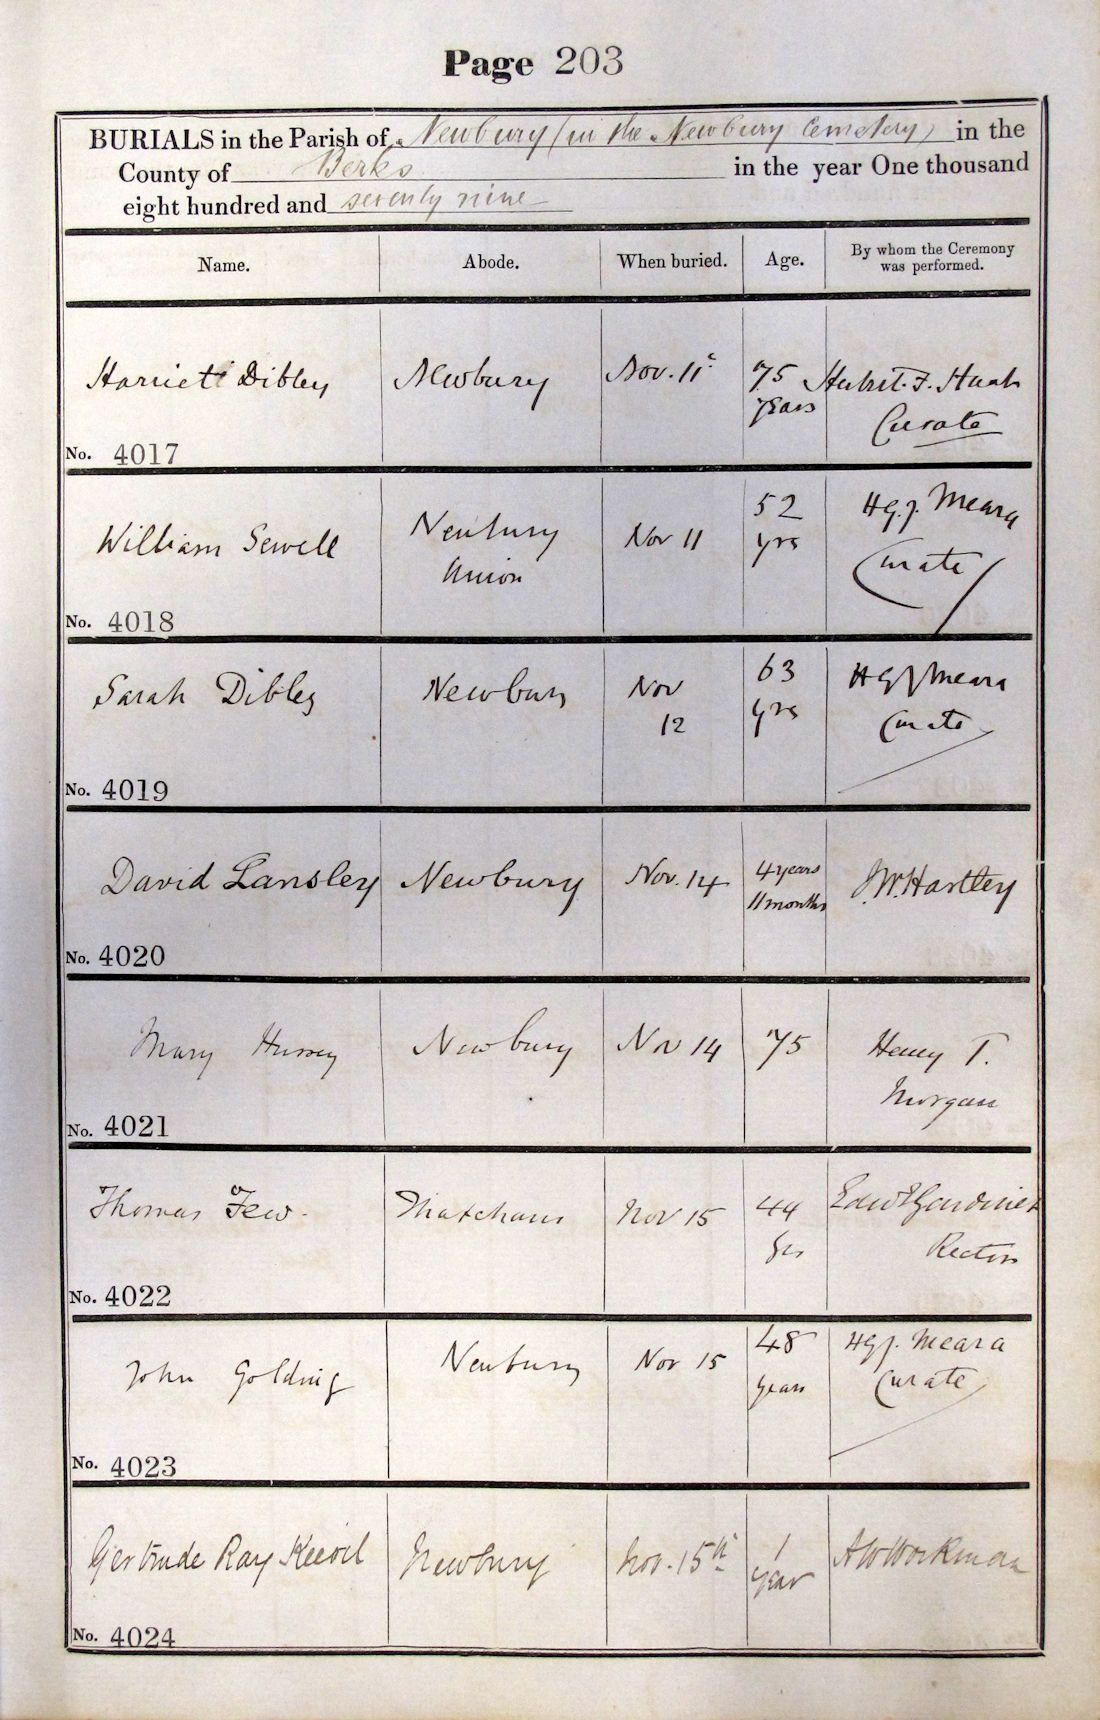 Page 203
BURIALS in the Parish of Newbury (in the Newbury Cemetery) in the
County of Berks in the year One thousand
eight hundred and seventy nine
Name. Abode. When buried. Age. By whom the Ceremony was performed.
Harriett Dibley Newbury Nov. 11th 75 years F. Curate
No. 4017
William Sewell Newbury Union Nov 11 52 yrs H G. J. Meara Curate
No. 4018
Sarah Dibley Newbury Nov 12 63 yrs H G J Meara Curate
No. 4019
David Lansley Newbury Nov. 14 4 years 11 months J. W. Hartley
No. 4020
Mary Hussey Newbury Nov 14 75 Henry T. Morgan
No. 4021
Thomas Few. Thatcham Nov 15 44 yrs Edw E Gardiner Rector
No. 4022
John Golding Newbury Nov 15 48 years H G J. Meara Curate
No. 4023
Gertrude Ray Keevil Newbury Nov. 15th 1 year A W Workman
No. 4024